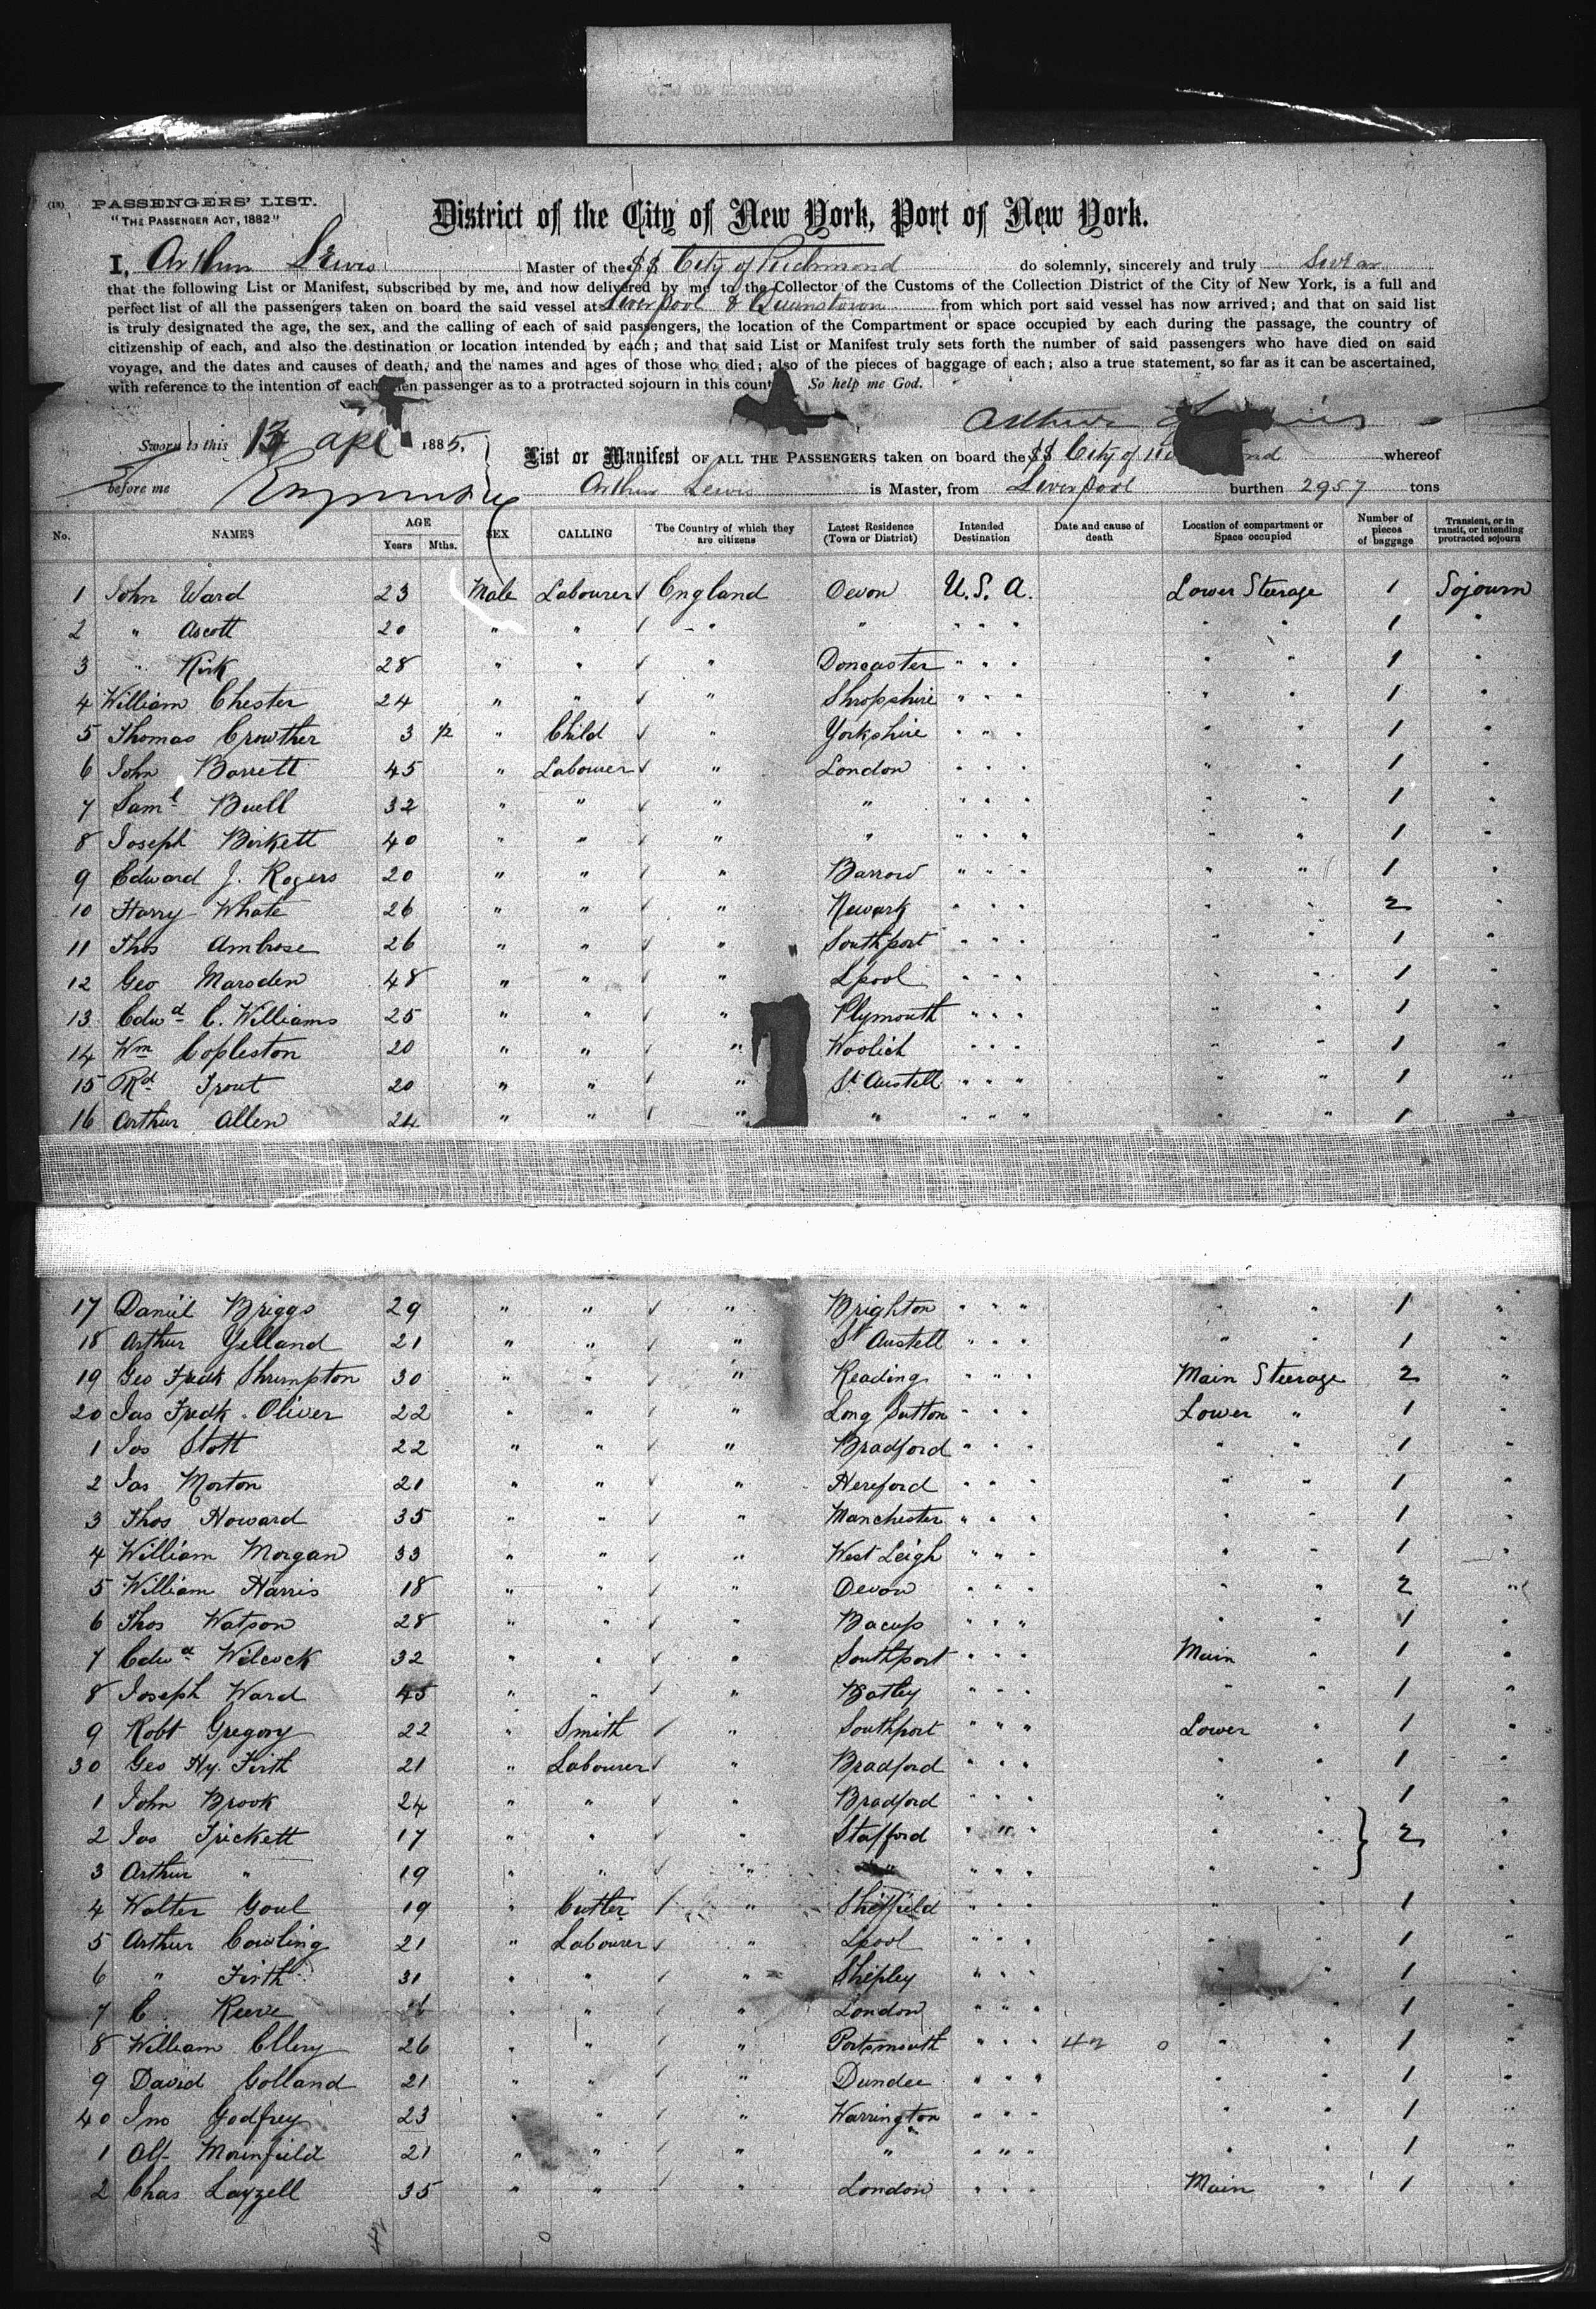 (18) PASSENGERS' LIST.
"THE PASSENGER ACT, 1882"
District of the City of New York, Port of New York.
I, Arthur Lewis Master of the SS City of Richmond do solemnly, sincerely and truly swear
that the following List or Manifest, subscribed by me, and now delivered by me to the Collector of the Customs of the Collection District of the City of New York, is a full and
perfect list of all the passengers taken on board the said vessel at Liverpool & Queenstown from which port said vessel has now arrived; and that on said list
is truly designated the age, the sex, and the calling of each of said passengers, the location of the Compartment or space occupied by each during the passage, the country of
citizenship of each, and also the destination or location intended by each; and that said List or Manifest truly sets forth the number of said passengers who have died on said
voyage, and the dates and causes of death, and the names and ages of those who died; also of the pieces of baggage of each; also a true statement, so far as it can be ascertained,
with reference to the intention of each passenger as to a protracted sojourn in this So help me God.
Arthur Lewis
Sworn to this 13 apl 1885.
List or Manifest OF ALL THE PASSENGERS taken on board the SS City of whereof
before me
Arthur Lewis is Master, from Liverpool burthen 2957 tons
No. NAMES AGE Years Mths. SEX CALLING The Country of which they are citizens Latest Residence (Town or District) Intended Destination Date and cause of death Location of compartment or Space occupied Number of pieces of baggage Transient, or in transit, or intending protracted sojourn
1 John Ward 23 Male Labourer England Devon U.S.A. Lower Steerage 1 Sojourn
2 " Ascott 20 " " " " " " " " " 1 "
3 " Kirk 28 " " " Doncaster " " " " " 1 "
4 William Chester 24 " " " Shropshire " " " " " 1 "
5 Thomas Crowther 3 1/2 " Child " Yorkshire " " " " " 1 "
6 John Barrett 45 " Labourer " London " " " " " 1 "
7 Saml Buell 32 " " " " " " " " " 1 "
8 Joseph Birkett 40 " " " " " " " " " 1 "
9 Edward J. Rogers 20 " " " Barrow " " " " " 1 "
10 Harry Whate 26 " " " Newark " " " " " 2 "
11 Thos Ambrose 26 " " " Southport " " " " " 1 "
12 Geo Marsden 48 " " " Lpool " " " " " 1 "
13 Edwd C. Williams 25 " " " Plymouth " " " " " 1 "
14 Wm Copleston 20 " " " Woolich " " " " " 1 "
15 Rd Trout 20 " " " St Austell " " " " " 1 "
16 Arthur Allen 24 " " " " " " " " " 1 "
17 Daniel Briggs 29 " " " Brighton " " " " " 1 "
18 Arthur Yelland 21 " " " St Austell " " " " " 1 "
19 Geo Fredk Shrimpton 30 " " " Reading " " " Main Steerage 2 "
20 Jas Fredk Oliver 22 " " " Long Sutton " " " Lower " 1 "
1 Jos Stott 22 " " " Bradford " " " " " 1 "
2 Jas Morton 21 " " " Hereford " " " " " 1 "
3 Thos Howard 35 " " " Manchester " " " " " 1 "
4 William Morgan 33 " " " West Leigh " " " " " 1 "
5 William Harris 18 " " " Devon " " " " " 2 "
6 Thos Watson 28 " " " Bacup " " " " " 1 "
7 Edwd Wilcock 32 " " " Southport " " " Main " 1 "
8 Joseph Ward 45 " " " Batley " " " " " 1 "
9 Robt Gregory 22 " Smith " Southport " " " Lower " 1 "
30 Geo Hy. Firth 21 " Labourer " Bradford " " " " " 1 "
1 John Brook 24 " " " Bradford " " " " " 1 "
2 Jas Trickett 17 " " " Stafford " " " " " } 2 "
3 Arthur " 19 " " " " " " " " " "
4 Walter Goul 19 " Cutler " Sheffield " " " " " 1 "
5 Arthur Cowling 21 " Labourer " Lpool " " " " " 1 "
6 " Firth 31 " " " Shipley " " " " " 1 "
7 C Reeve " " " London " " " " " 1 "
8 William Ellery 26 " " " Portsmouth " " " " " 1 "
9 David Golland 21 " " " Dundee " " " " " 1 "
40 Jno Godfrey 23 " " " Warrington " " " " " 1 "
1 Alf Mainfield 21 " " " " " " " " " 1 "
2 Chas Layzell 35 " " " London " " " Main " 1 "